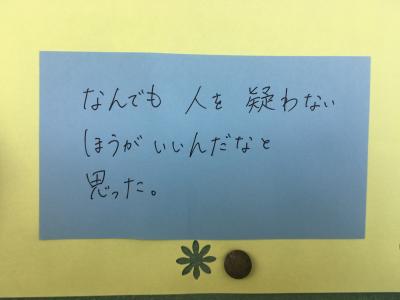 なんでも 人を 疑わない
ほうが いいんだなと
思った。